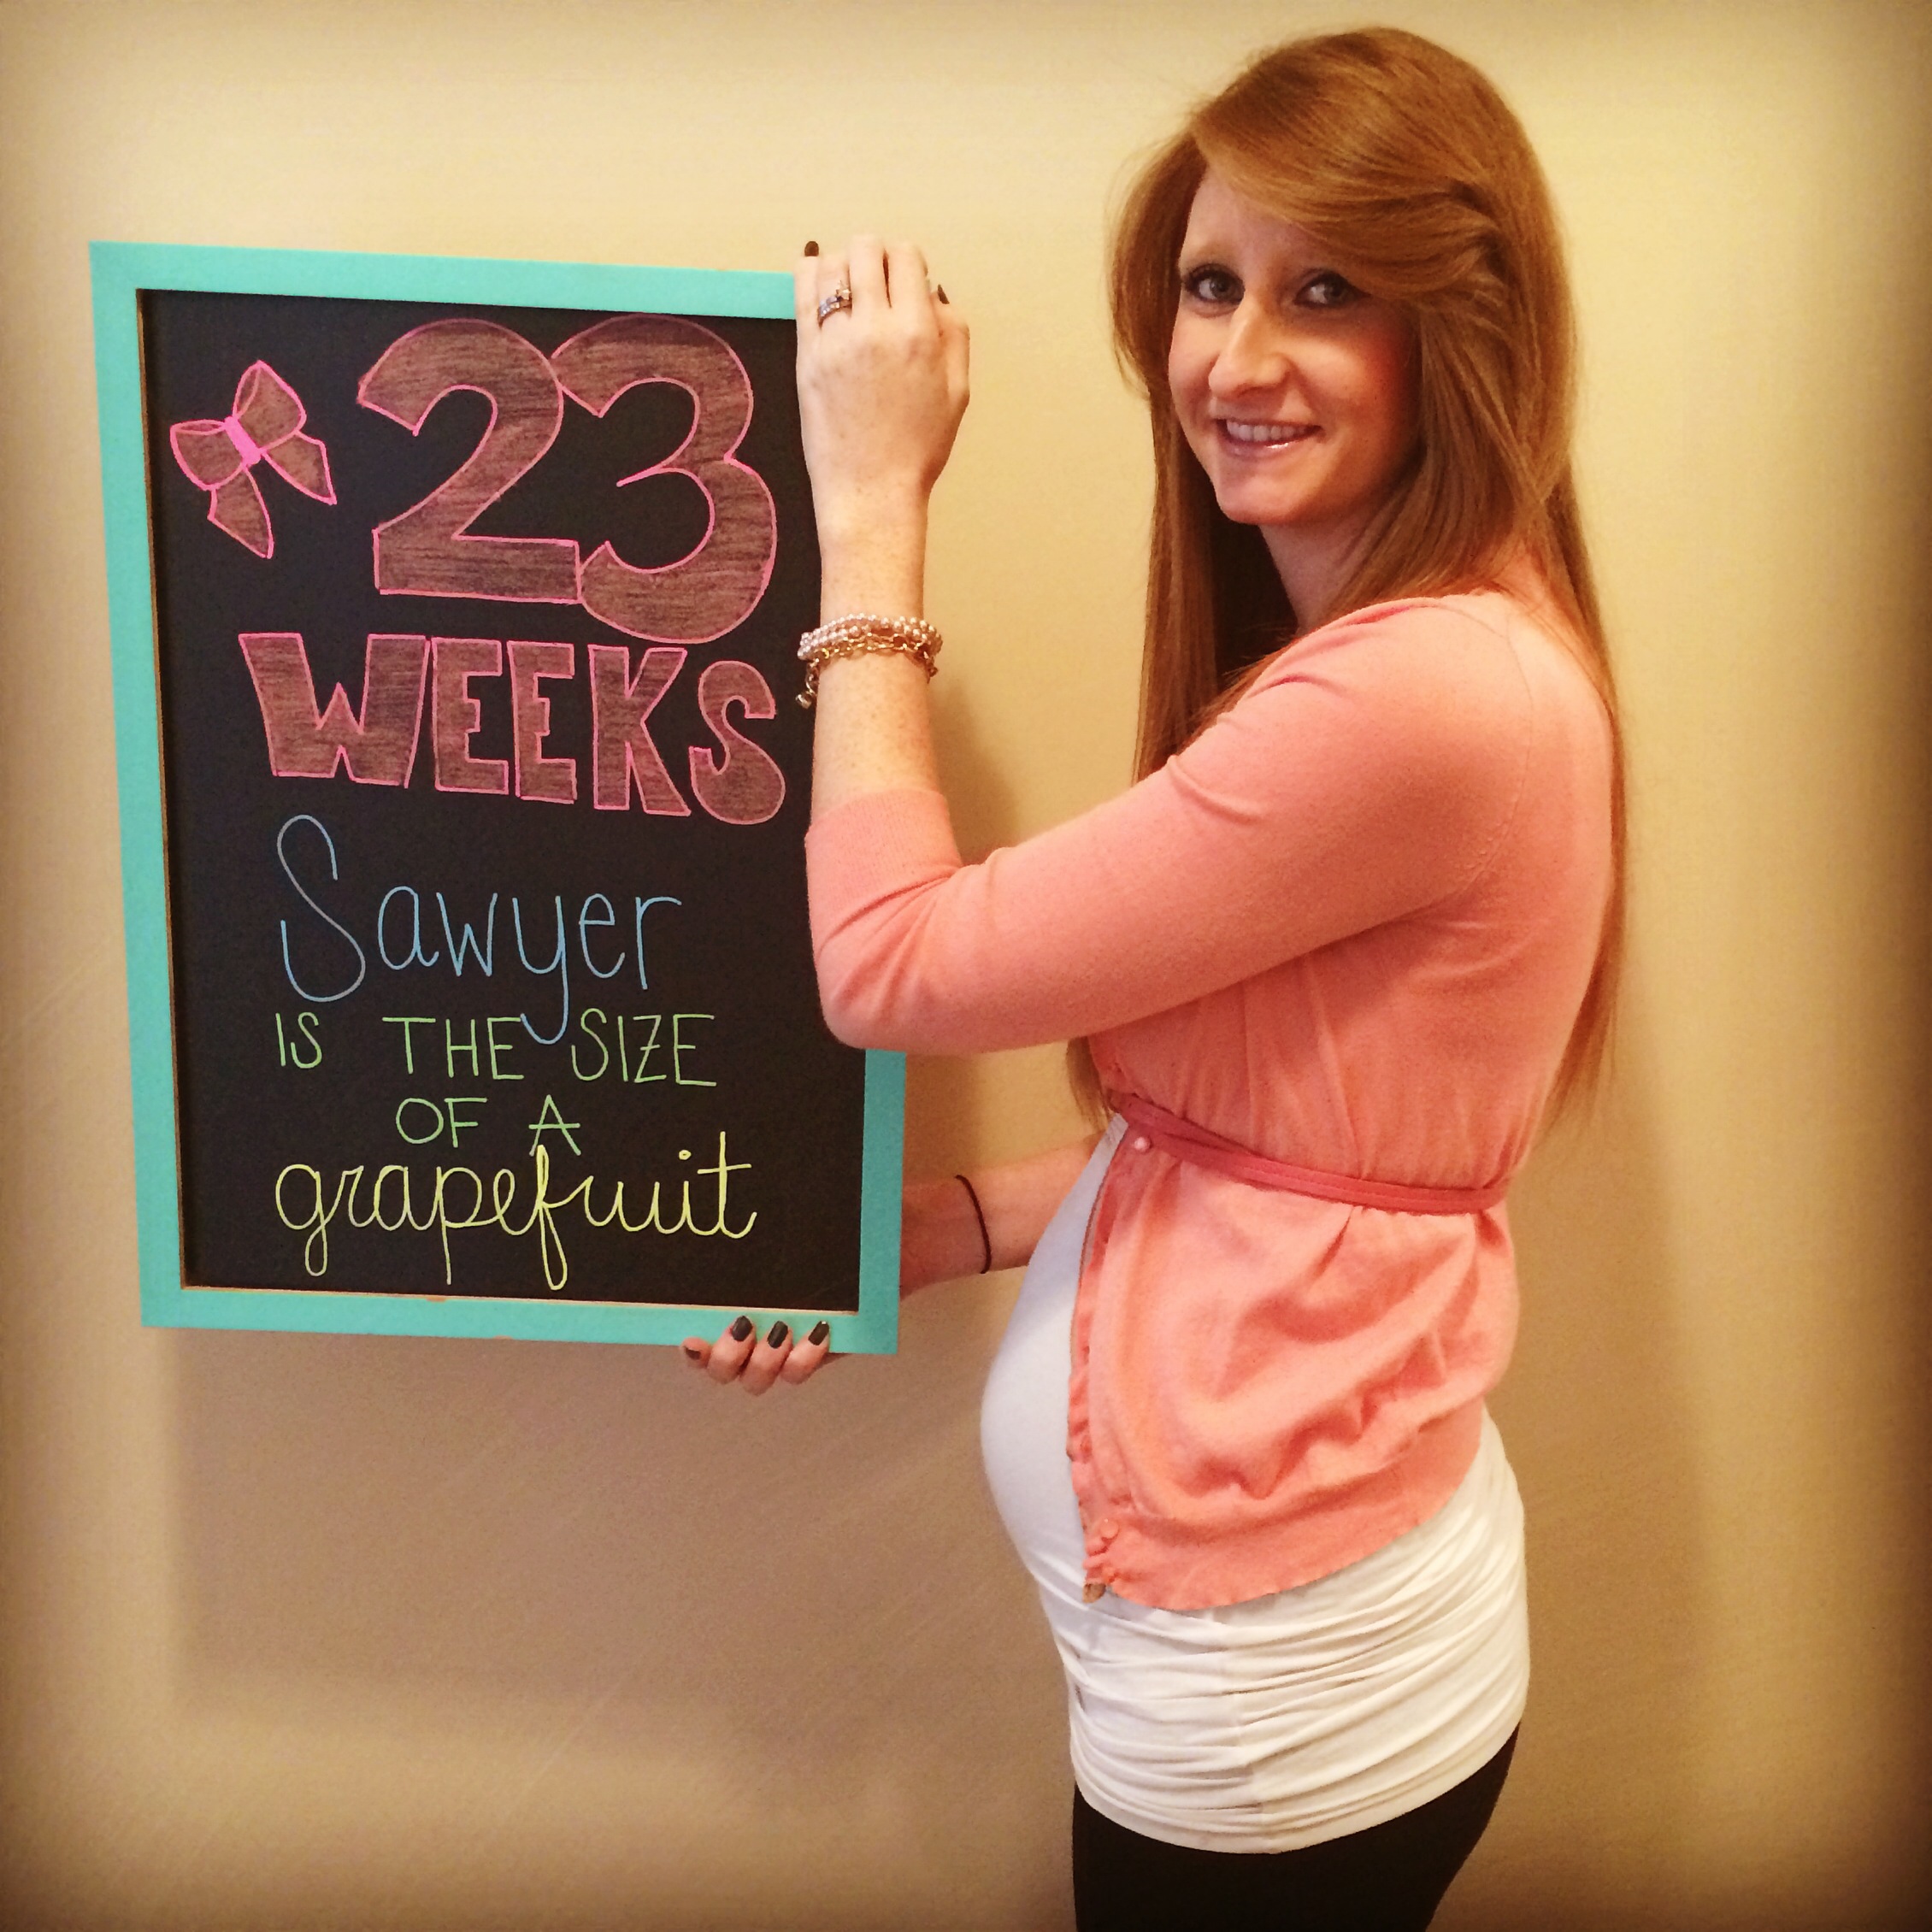 23
WEEKS
Sawyer
IS THE SIZE
OF A
grapefruit